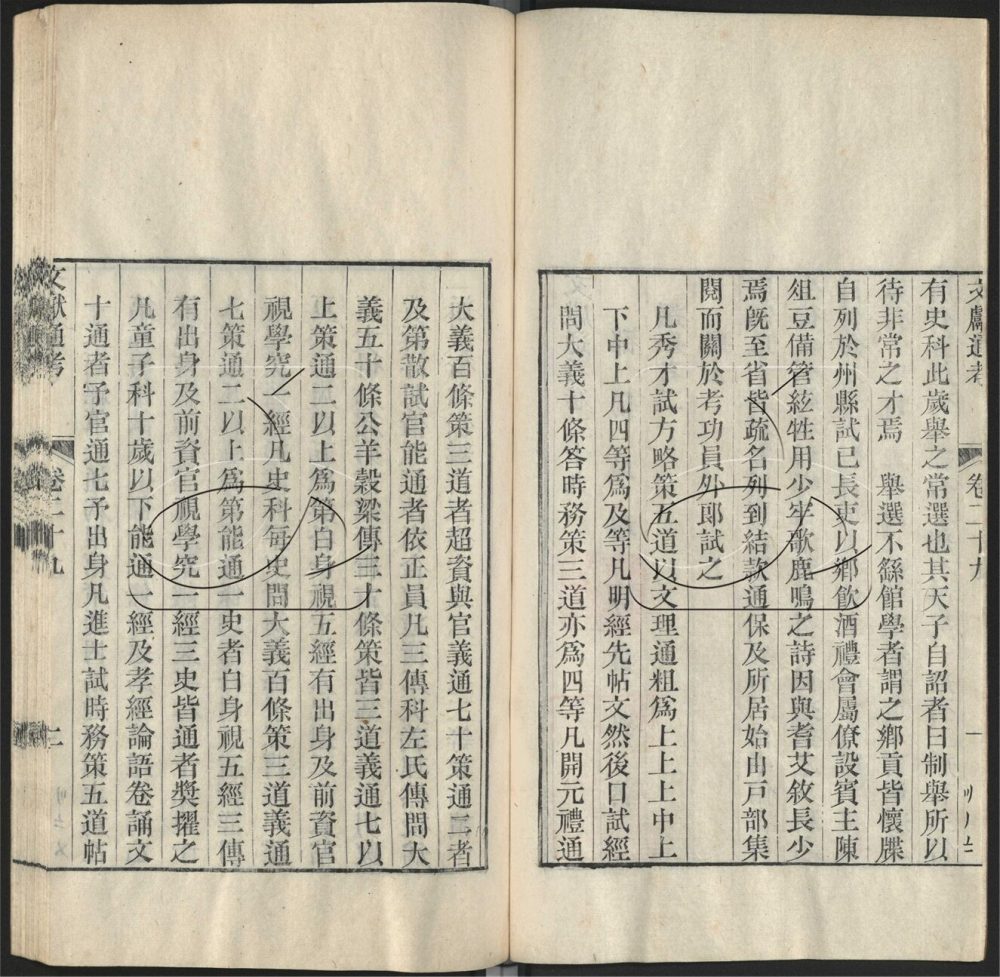 文獻通考 卷二十九 一
有史科此歲舉之常選也其天子自詔者曰制舉所以
待非常之才焉 舉選不繇館學者謂之鄉貢皆懷牒
自列於州縣試已長吏以鄉飲酒禮會屬僚設賓主陳
俎豆備管絃牲用少牢歌鹿鳴之詩因與耆艾敘長少
焉旣至省皆疏名列到結款通保及所居始由戸部集
閱而關於考功員外郎試之
凡秀才試方略策五道以文理通粗爲上上上中上
下中上凡四等爲及等凡明經先帖文然後口試經
問大義十條答時務策三道亦爲四等凡開元禮通
大義百條策三道者超資與官義通七十策通二者
及第散試官能通者依正員凡三傳科左氏傳問大
義五十條公羊穀梁傳三十條策皆三道義通七以
上策通二以上爲第白身視五經有出身及前資官
視學究一經凡史科每史問大義百條策三道義通
七策通二以上爲第能通一史者白身視五經三傳
有出身及前資官視學究一經三史皆通者獎擢之
凡童子科十歲以下能通一經及孝經論語卷誦文
十通者予官通七予出身凡進士試時務策五道帖
文獻通考 卷二十九 二